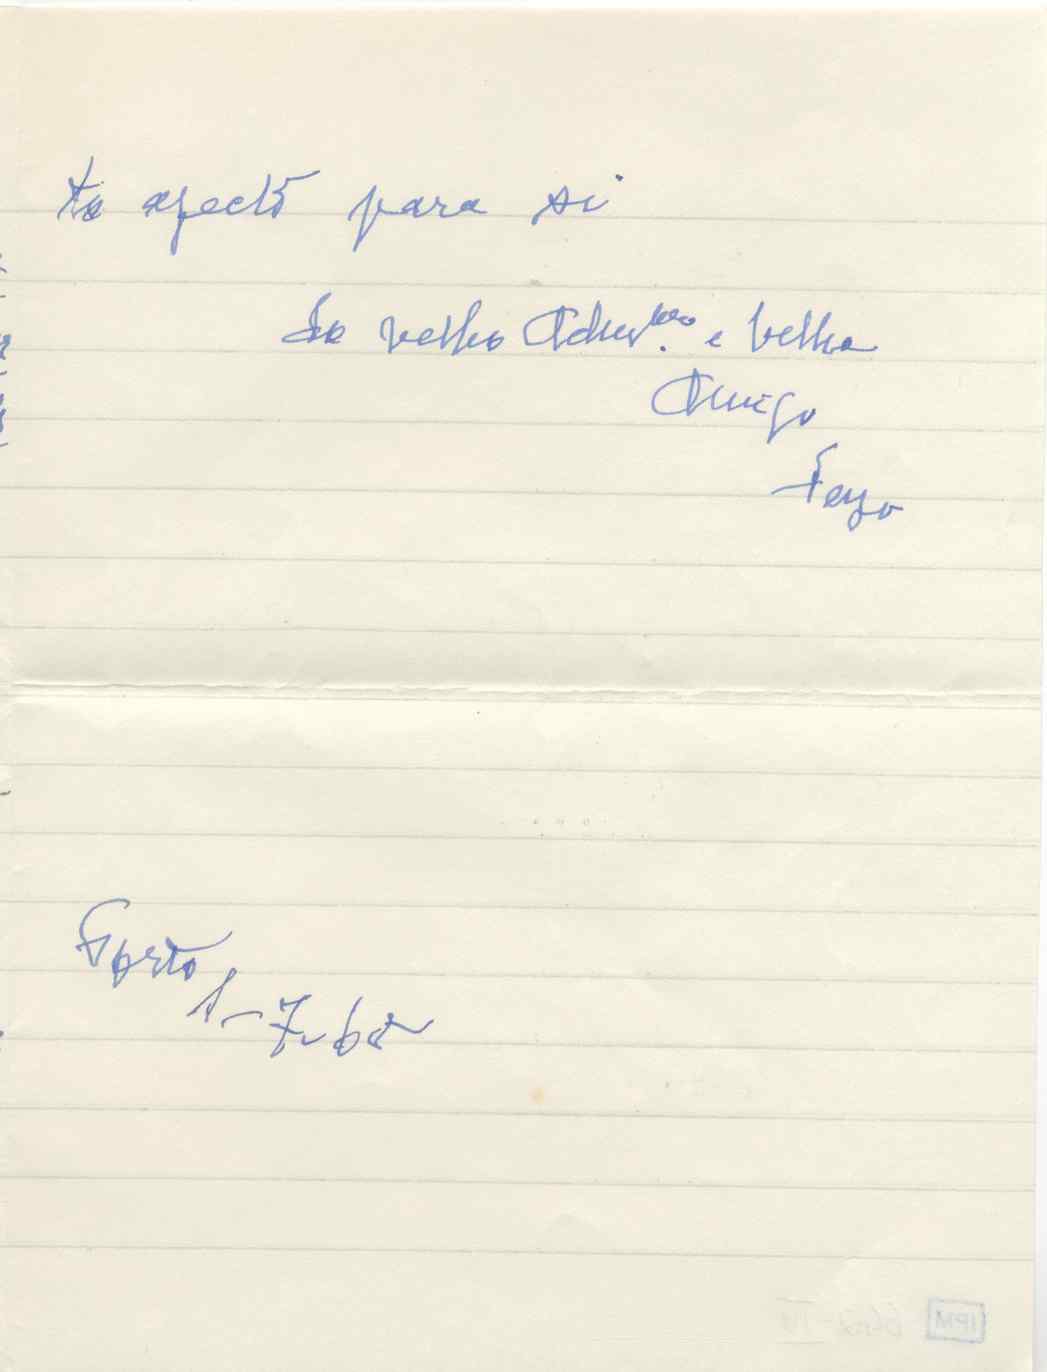 to afecto para si
Do velho Adm.dor e velho
Amigo
Feyo
Porto
1-7-62